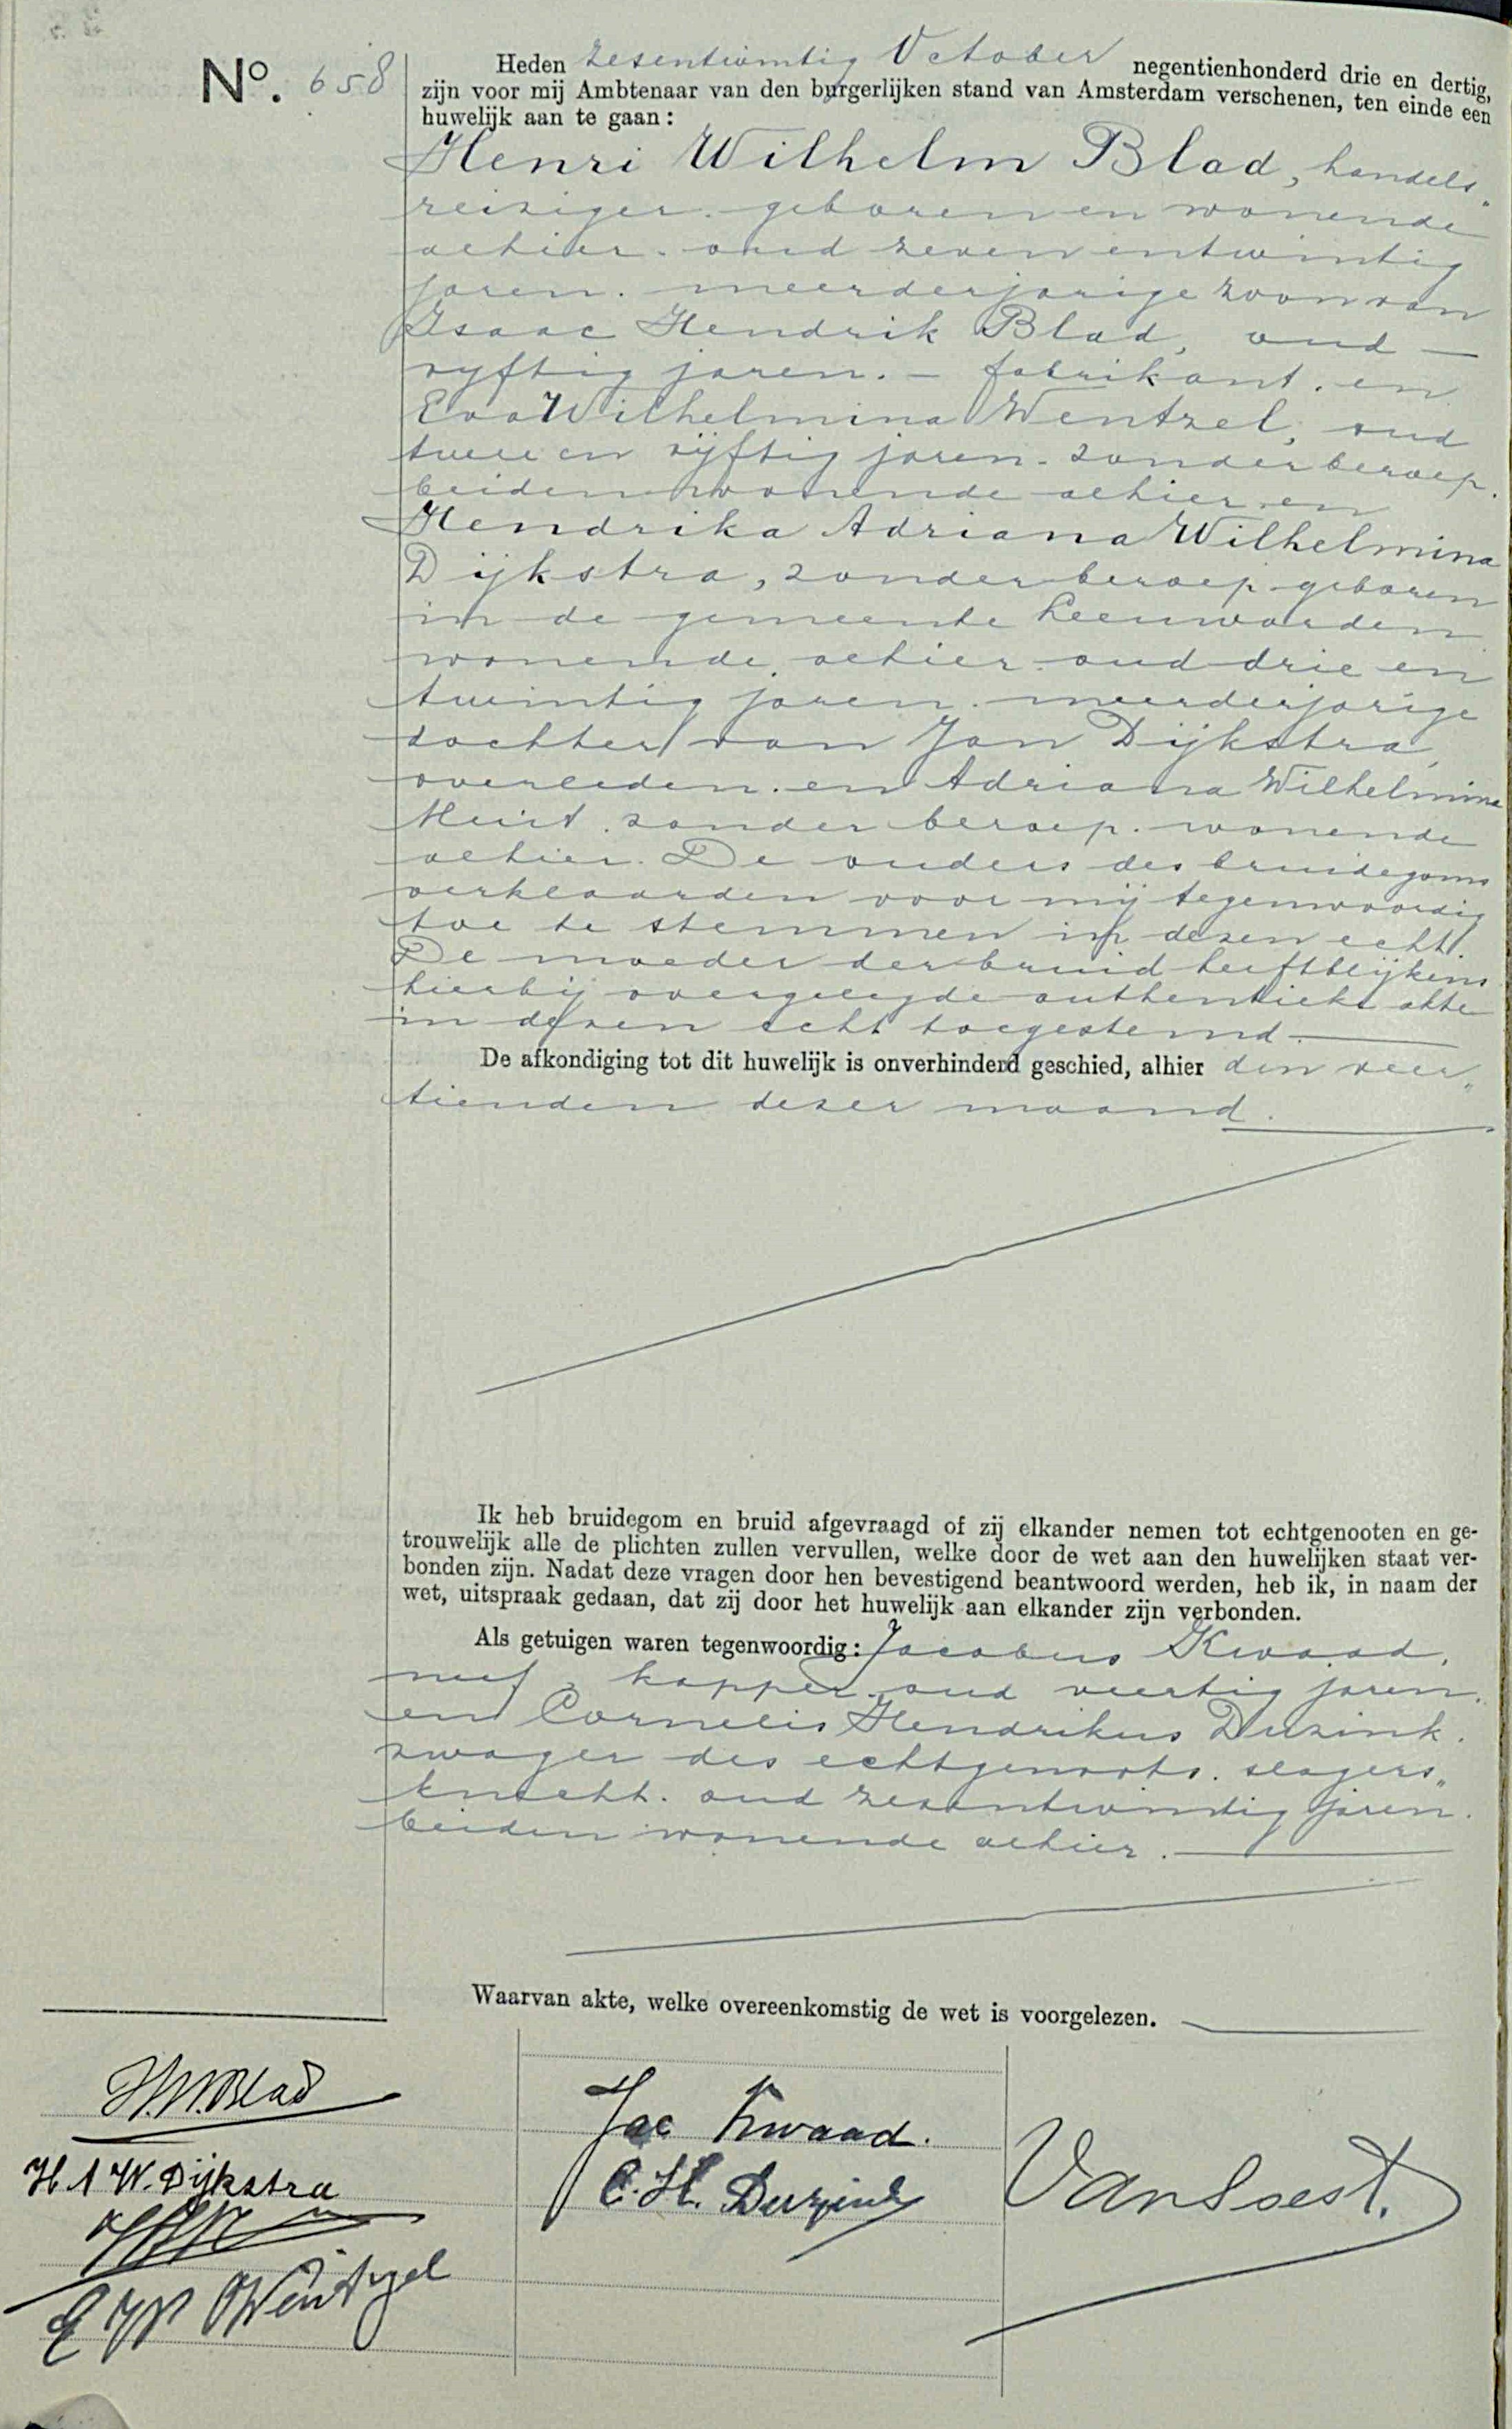 No. 658
Heden zesentwintig October negentienhonderd drie en dertig,
zijn voor mij Ambtenaar van den burgerlijken stand van Amsterdam verschenen, ten einde een
huwelijk aan te gaan:
Henri Wilhelm Blad, handels„
reiziger. geboren en wonende
alhier. oud zeven entwintig
jaren. meerderjarige zoon van
Isaac Hendrik Blad, oud —
vyftig jaren. — fabrikant. en
Eva Wilhelmina Wentzel, oud
twee en vijftig jaren. zonder beroep.
beiden wonende alhier en
Hendrika Adriana Wilhelmina
Dijkstra, zonder beroep geboren
in de gemeente Leeuwarden
wonende alhier oud drie en
twintig jaren. meerderjarige
dochter van Jan Dijkstra,
overleden. en Adriana Wilhelmina
zonder beroep. wonende
alhier. De ouders des bruidegoms
verklaarden voor mij tegenwoordig
toe te stemmen in dezen echt.
De moeder der bruid heeft blijkens
hierbij overgelegde authentieke akte
in dezen echt toegestemd.
De afkondiging tot dit huwelijk is onverhinderd geschied, alhier den veer„
tienden dezer maand.
Ik heb bruidegom en bruid afgevraagd of zij elkander nemen tot echtgenooten en ge-
trouwelijk alle de plichten zullen vervullen, welke door de wet aan den huwelijken staat ver-
bonden zijn. Nadat deze vragen door hen bevestigend beantwoord werden, heb ik, in naam der
wet, uitspraak gedaan, dat zij door het huwelijk aan elkander zijn verbonden.
Als getuigen waren tegenwoordig: Jacobus Kwaad,
neef, kapper. oud veertig jaren.
en Cornelis Hendrikus Duzink.
zwager des echtgenoots. slagers„
knecht. oud zesentwintig jaren.
beiden wonende alhier.
Waarvan akte, welke overeenkomstig de wet is voorgelezen.
H.W. Blad
H A W. Dijkstra
E W Wentzel
Jac Kwaad.
C. H. Duzink
Van Soest.